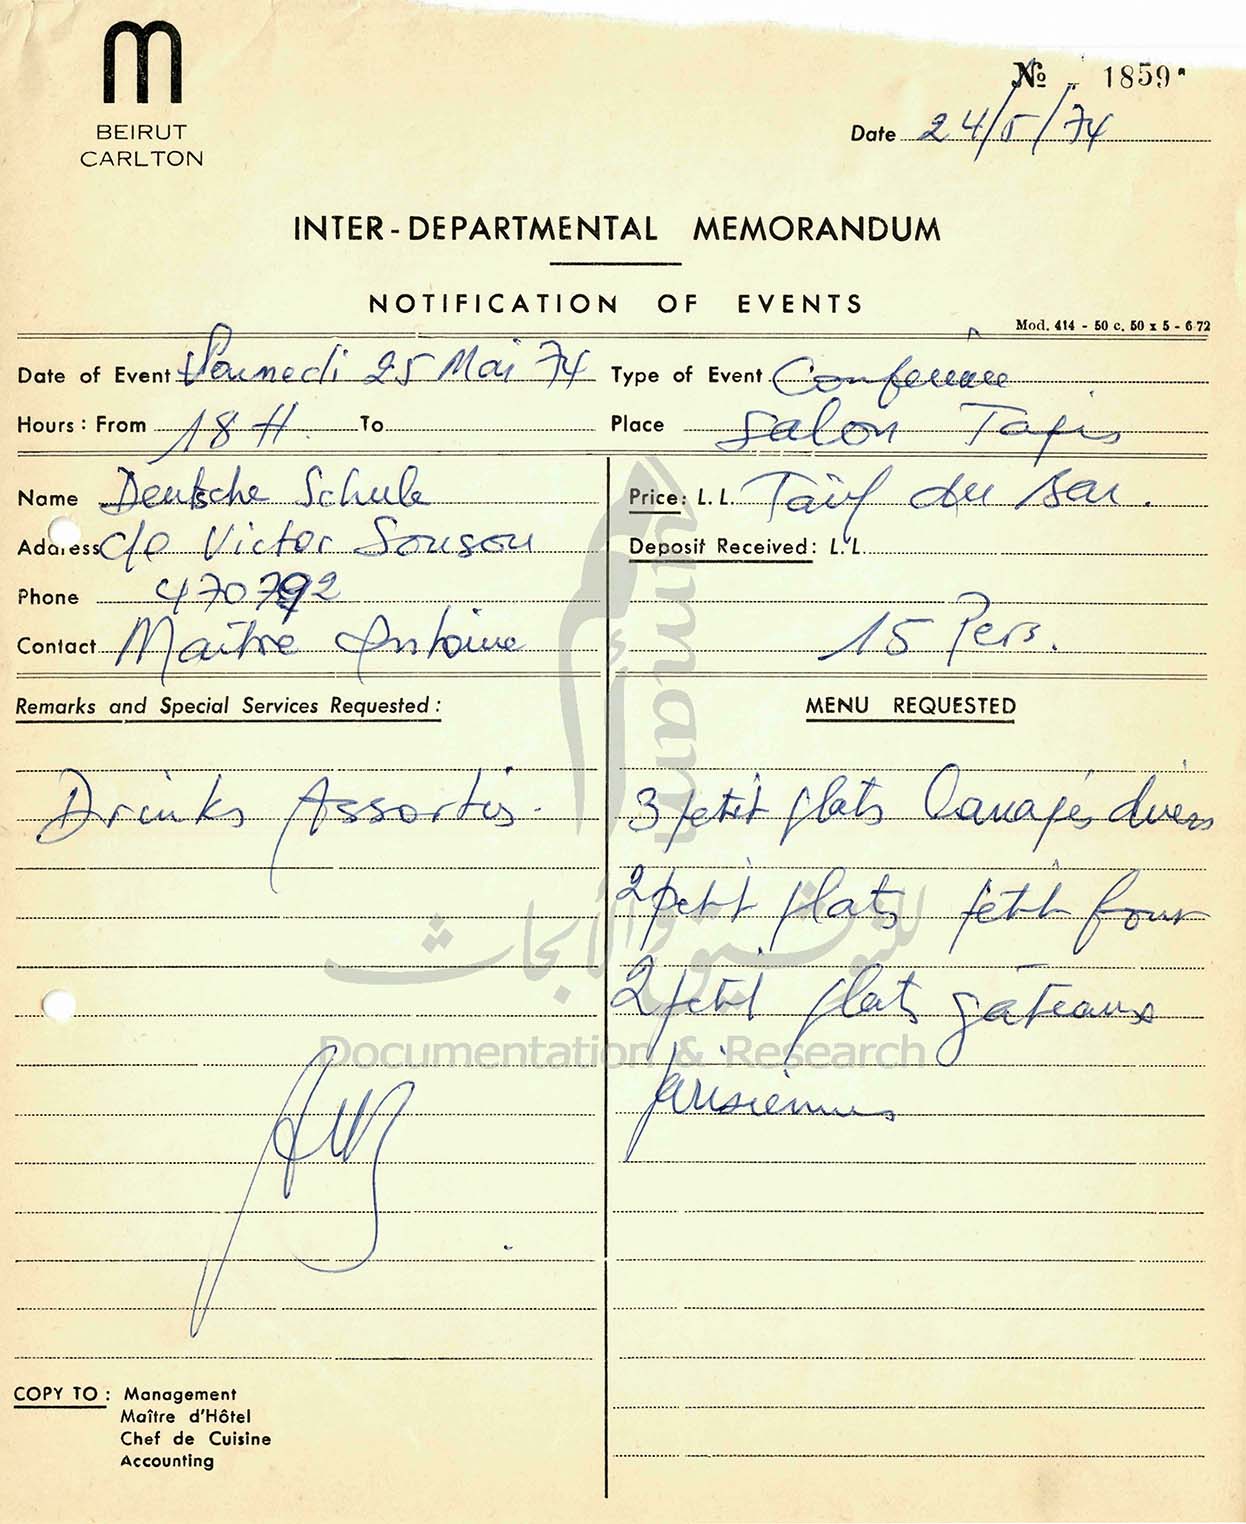 m
BEIRUT
CARLTON
№ 1859
Date 24/5/74
INTER-DEPARTMENTAL MEMORANDUM
NOTIFICATION OF EVENTS
Mod. 414 - 50 c. 50 x 5 - 6 72
Date of Event Samedi 25 Mai 74 Type of Event Conférence
Hours: From 18 H. To Place Salon Tapis
Name Deutsche Schule Price: L.L. Tarif du Bar.
Address c/o Victor Sousou Deposit Received: L.L.
Phone 470792
Contact Maître Antoine 15 Pers.
Remarks and Special Services Requested: MENU REQUESTED
Drinks Assortis. 3 petit plats Canapés divers
2 petit plats petit four
2 petit plats gâteaux
parisiennes
COPY TO: Management
Maître d'Hôtel
Chef de Cuisine
Accounting
umam
للتوثيق والأبحاث
Documentation & Research